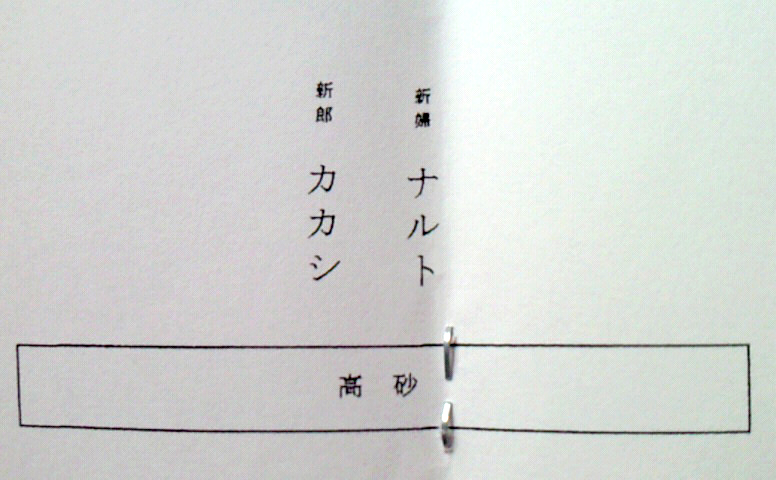 新婦 ナルト
新郎 カカシ
高砂